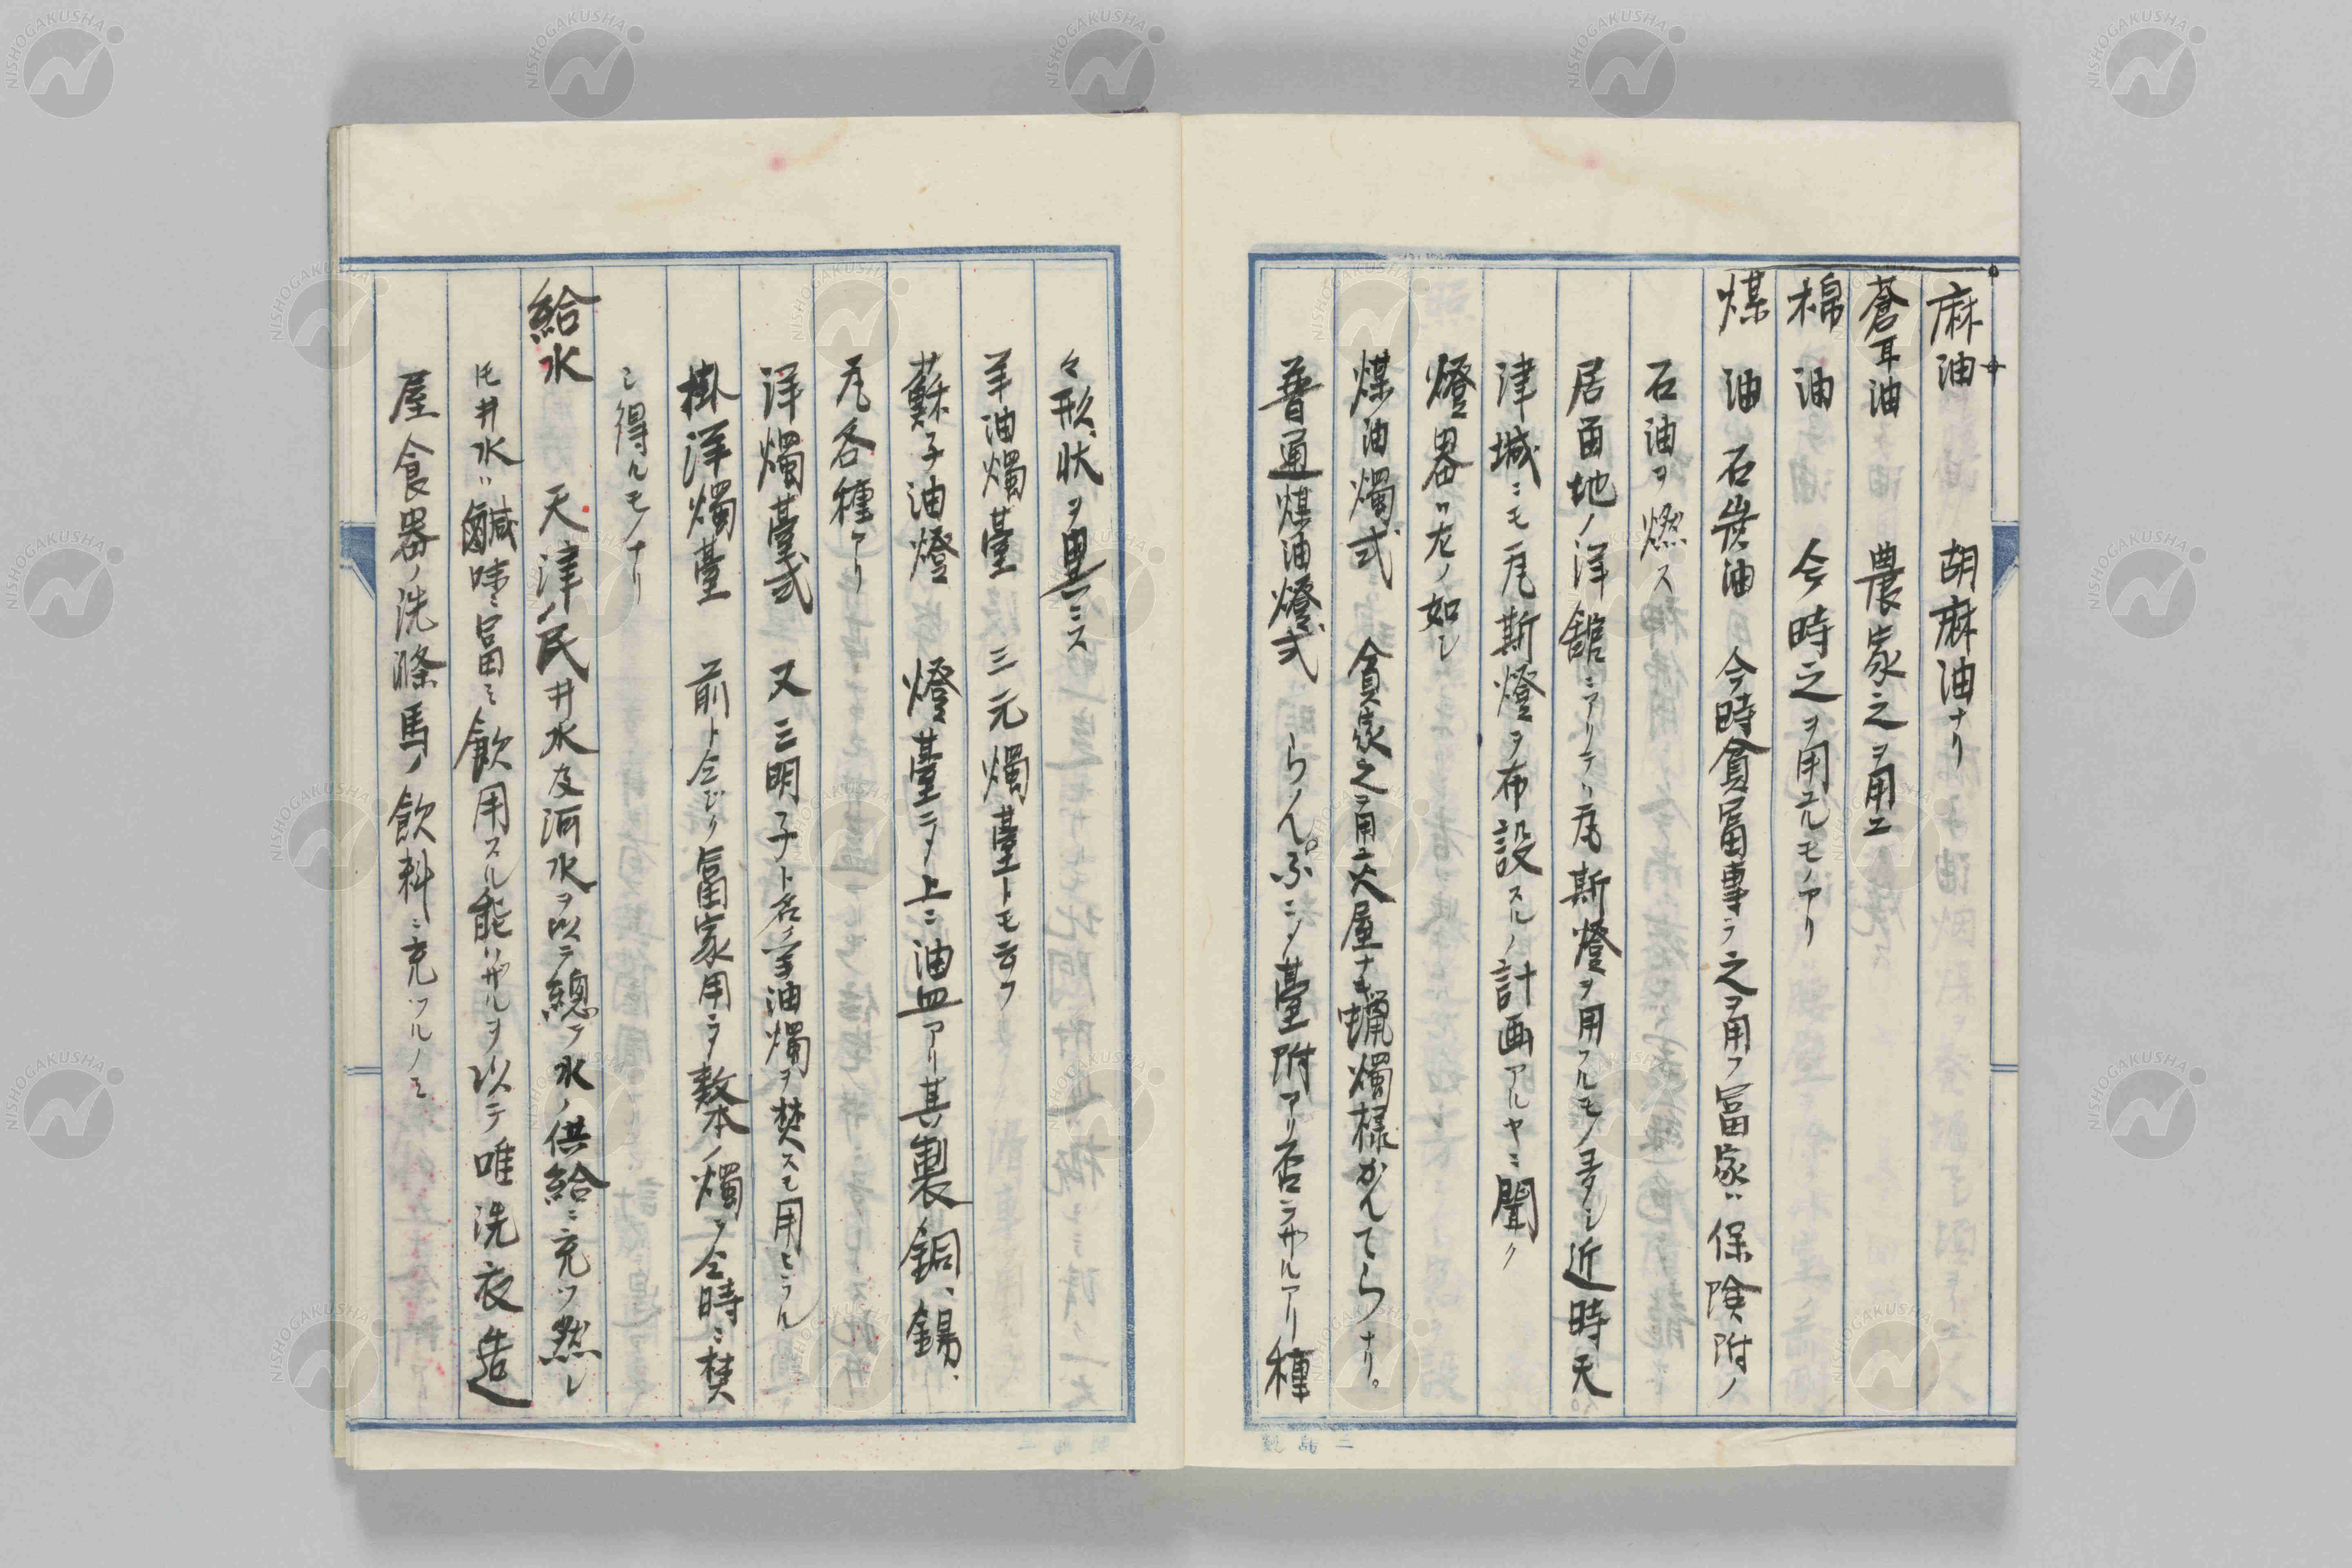 麻油 胡麻油ナリ
蒼耳油 農家之ヲ用エ
棉油 今時之ヲ用元モノアリ
煤油 石炭油 今時貧富専ラ之ヲ用フ富家ハ保険附ノ
石油ヲ燃ス
居留地ノ洋舘ニアリテハ瓦斯燈ヲ用フルモノ多シ近時天
津城ニモ瓦斯燈ヲ布設スルノ計画アルヤニ聞ク
燈器ハ左ノ如シ
煤油燭式 貧家之ヲ用
普通煤油燈式 らんぷニシ臺附アリ否ラザルアリ種
々形状ヲ異ニス
羊油燭臺 三元燭臺トモ云フ
蘇子油燈 燈臺ニシテ上ニ油皿アリ其製銅、錫、
瓦各種アリ
洋燭臺式 又三明子ト名ク羊油燭ヲ焚スモ用ヒラル
掛洋燭臺 前ト仝ジク富家用ヲ数本ノ燭ヲ仝時ニ焚
シ得ルモノナリ
給水 天津ノ民井水及河水ヲ以テ總テ水ノ供給ニ充ツ然レ
𪜈井水ハ鹹味ニ富ミ飲用スル能ハザルヲ以テ唯洗衣造
屋食器ノ洗滌馬ノ飲料ニ充ツルノミ
NISHOGAKUSHA